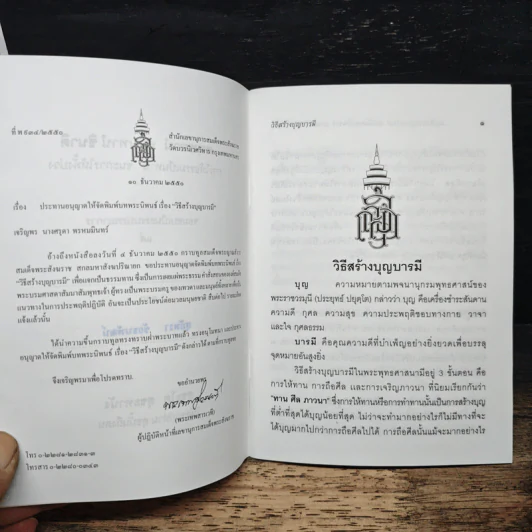 ที่ พ ๕๓๔/๒๕๕๑
สำนักเลขานุการสมเด็จพระสังฆราช
วัดบวรนิเวศวิหาร กรุงเทพมหานคร
๑๐ ธันวาคม ๒๕๕๑
เรื่อง ประทานอนุญาตให้จัดพิมพ์บทพระนิพนธ์ เรื่อง "วิธีสร้างบุญบารมี"
เจริญพร
อ้างถึงหนังสือลงวันที่ ๔ ธันวาคม ๒๕๕๑ กราบทูลสมเด็จพระญาณสังวร
สมเด็จพระสังฆราช สกลมหาสังฆปริณายก ขอประทานอนุญาตจัดพิมพ์
"วิธีสร้างบุญบารมี" เพื่อแจกเป็นธรรมทาน
แนวทางในการประพฤติปฏิบัติ อันจะเป็นประโยชน์ต่อมวลมนุษยชาติ
แจ้งแล้วนั้น
ได้นำความขึ้นกราบทูลทรงทราบฝ่าพระบาทแล้ว ทรงอนุโมทนา
อนุญาตให้จัดพิมพ์บทพระนิพนธ์ เรื่อง "วิธีสร้างบุญบารมี"
จึงเจริญพรมาเพื่อโปรดทราบ
ขออำนวยพร
ผู้ปฏิบัติหน้าที่เลขานุการสมเด็จพระสังฆราช
โทร ๐-๒๒๘๑-๒๘๓๑-๓
โทรสาร ๐-๒๒๘๐-๐๓๔๓
วิธีสร้างบุญบารมี ๑
วิธีสร้างบุญบารมี
บุญ ความหมายตามพจนานุกรมพุทธศาสน์ของ
พระราชวรมุนี (ประยุทธ์ ปยุตฺโต) กล่าวว่า บุญ คือเครื่องชำระสันดาน
ความดี กุศล ความสุข ความประพฤติชอบทางกาย วาจา
และใจ กุศลธรรม
บารมี คือคุณความดีที่บำเพ็ญอย่างยิ่งยวดเพื่อบรรลุ
จุดหมายอันสูงยิ่ง
วิธีสร้างบุญบารมีในพระพุทธศาสนามีอยู่ 3 ขั้นตอน คือ
การให้ทาน การถือศีล และการเจริญภาวนา ที่นิยมเรียกกันว่า
"ทาน ศีล ภาวนา" ซึ่งการให้ทานหรือการทำทานนั้นเป็นการสร้างบุญ
ที่ต่ำที่สุดได้บุญน้อยที่สุด ไม่ว่าจะทำมากอย่างไรก็ไม่มีทางที่จะ
ได้บุญมากไปกว่าการถือศีลไปได้ การถือศีลนั้นแม้จะมากอย่างไร